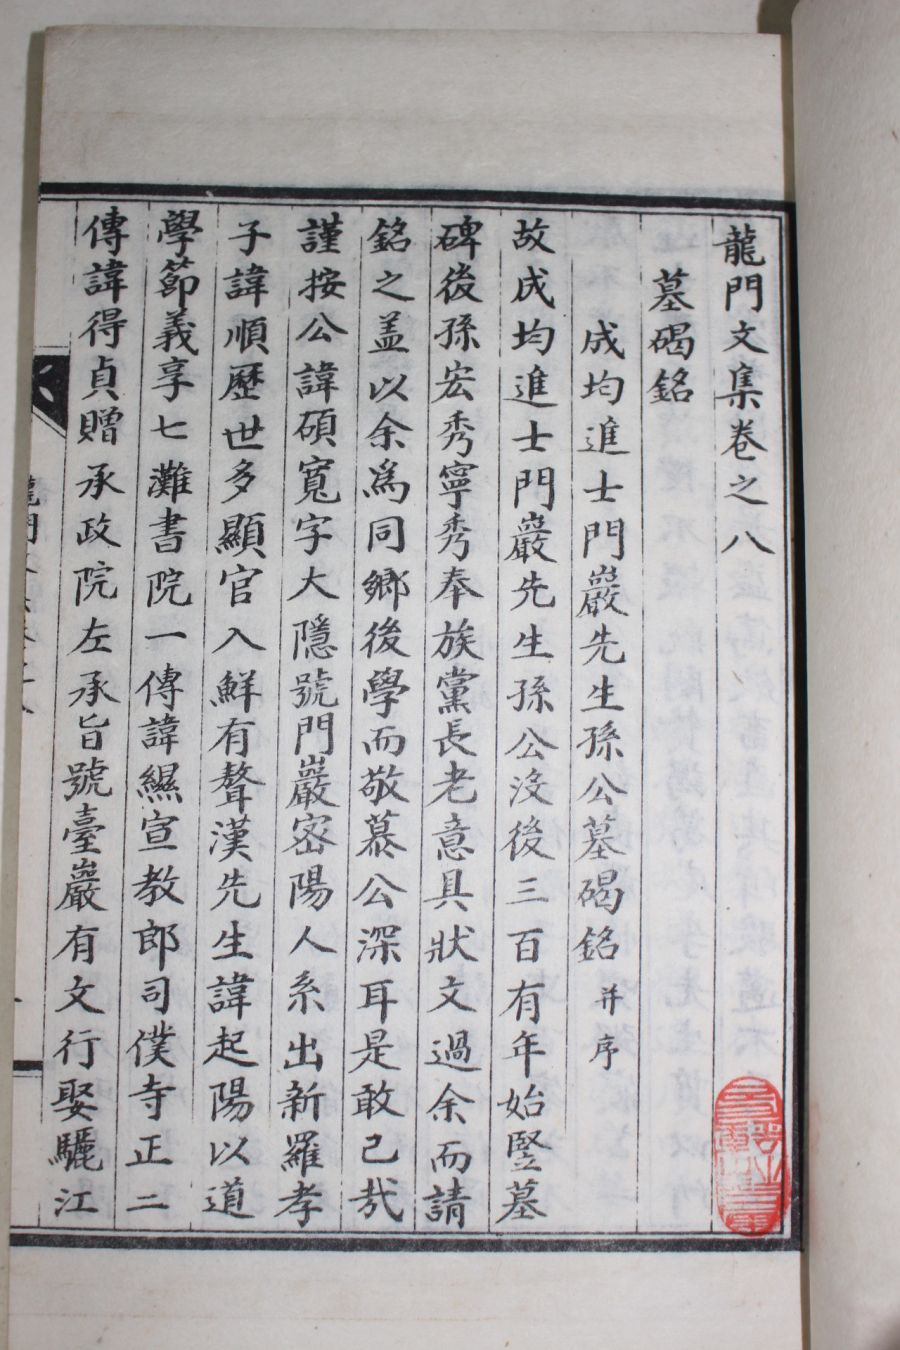 龍門文集卷之八
墓碣銘
成均進士門巖先生孫公墓碣銘 并序
故成均進士門巖先生孫公沒後三百有年始竪墓
碑後孫宏秀寧秀奉族黨長老意具狀文過余而請
銘之盖以余爲同鄉後學而敬慕公深耳是敢已㢤
謹按公諱碩寬字大隱號門巖密陽人系出新羅孝
子諱順歷世多顯官入鮮有聱漢先生諱起陽以道
學節義享七灘書院一傳諱縜宣教郎司僕寺正二
傳諱得貞贈承政院左承旨號臺巖有文行娶驪江